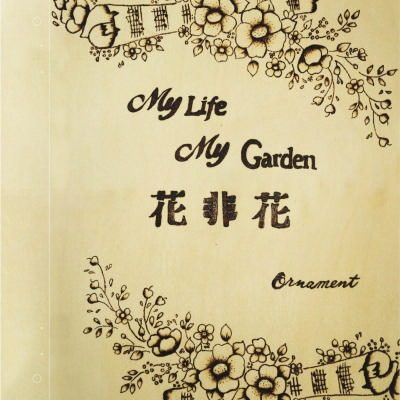 My Life
My Garden
花非花
Ornament